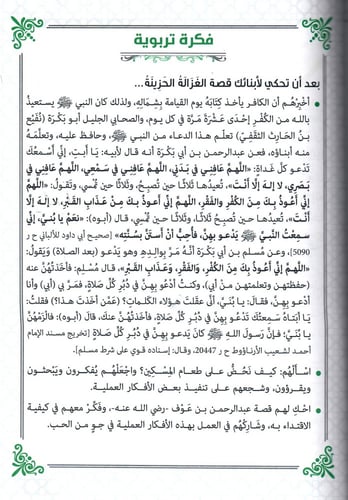 فكرة تربوية
بعد أن تحكي لأبنائك قصة الغَزَالَةُ الحَزِينَةُ...
• أخْبِرْهُم أن الكافر يأخذ كِتَابَهُ يوم القيامة بِشِمَالِهِ، ولذلك كان النبي ﷺ يستعيذُ
بالله من الكُفْرِ إحْدَى عَشْرَةَ مَرَّة في كل يوم، والصحابي الجليل أبو بَكْرَة (نُفَيْع
بْنُ الحَارِث الثَّقَفِيّ) تعلَّم هذا الدعاء من النبي ﷺ، وحافظ عليه، وتعلَّمَهُ
منه أبناؤه، فعن عبدالرحمن بن أبي بَكْرَة أنه قال لأبيه: يَا أبتِ، إنِّي أسْمَعُكَ
تَدْعُو كلَّ غَدَاةٍ: «اللَّهمَّ عَافِنِي في بَدَنِي، اللَّهمَّ عَافِنِي في سَمْعِي، اللَّهمَّ عَافِنِي في
بَصَرِي، لا إلهَ إلَّا أنتَ»، تُعِيدُها ثلاثًا حين تُصبِحُ، وثلاثًا حين تُمْسِي، وتَقُولُ: «اللَّهمَّ
إنِّي أعُوذُ بكَ مِنَ الكُفْرِ والفَقْرِ، اللَّهمَّ إنِّي أعُوذُ بكَ مِنْ عَذَابِ القَبْرِ، لا إلهَ إلَّا
أنتَ»، تُعِيدُها حين تُصبِحُ ثلاثًا، وثلاثًا حين تُمْسِي، قال (أبوه): «نعَمْ يا بُنَيَّ، إنِّي
سمِعتُ النَّبيَّ ﷺ يَدْعو بهنَّ، فأُحِبُّ أنْ أسْتَنَّ بسُنَّتِهِ» [صحيح أبي داود للألباني ح ر
5090)، وعن مُسلِم بن أبي بَكْرَة أنَّهُ مَرَّ بِوالِدِهِ وهو يَدْعُو (بعد الصلاة) وَيَقُولُ:
«اللَّهمَّ إنِّي أعُوذُ بكَ مِنَ الكُفْرِ، والفَقْرِ، وَعَذَابِ القَبْرِ»، قال مُسْلِم: فأخَذْتُهُنَّ عنه
(حفظتهن وتعلمتهن من أبي)، وكنتُ أدْعُو بهِنَّ في دُبُرِ كُلِّ صَلَاةٍ، فمَرَّ بي (أبي) وأنا
أدعو بِهِنَّ، فقالَ: يا بُنَيَّ، أنَّى عقَلْتَ هؤلاء الكَلِماتِ؟ (عَمَّن أخَذتَ هذا؟) فقلتُ:
يَا أبَتَاهُ سَمِعْتُكَ تَدْعُو بهنَّ في دُبُرِ كُلِّ صَلَاةٍ، فأخَذْتُهُنَّ عَنْكَ، قالَ (أبوه): فالزَمْهُنَّ
يا بُنَيَّ؛ فإنَّ رَسُولَ اللهِ ﷺ كانَ يَدْعُو بِهِنَّ في دُبُرِ كُلِّ صَلَاةٍ [تخريج مسند الإمام
أحمد لشعيب الأرناؤوط ح ر 20447، وقال: إسناده قوي على شرط مسلم].
• اسألْهُم: كيف نَحُضُّ على طعام المِسْكِين؟ واجعلْهُم يُفكرون ويَبْحثون
ويقرؤون، وشجعهم على تنفيذ بعض الأفكار العملية.
• احْكِ لهم قصة عبدالرحمن بن عَوْف -رضي الله عنه-، وفكِّر معهم في كيفية
الاقتداء به، وشارِكْهُم في العمل بهذه الأفكار العملية في جوٍ من الحب.